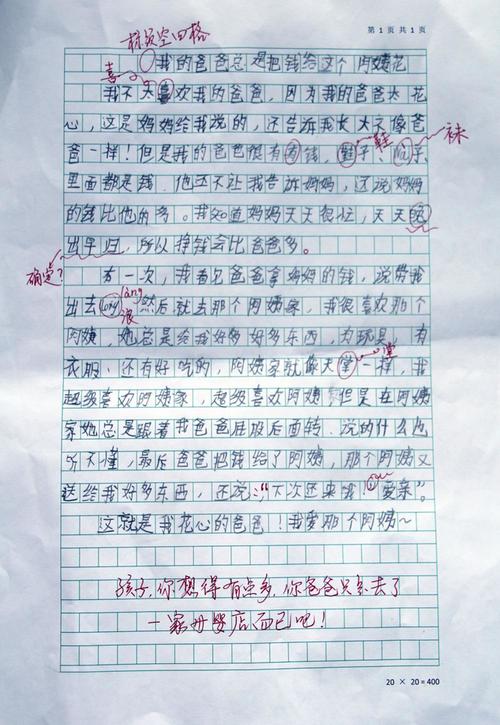 第 1 页 共 1 页
标题空四格
我的爸爸总是把钱给这个阿姨花
喜
我不大喜欢我的爸爸，因为我的爸爸太花
心，这是妈妈给我说的，还告诉我长大不像爸
爸一样！但是我的爸爸很有钱，鞋子、子
鞋
袜
里面都是钱，他还不让我告诉妈妈，还说妈妈
的钱比他的多。我知道妈妈天天很忙，天天晚
出早归，所以挣钱会比爸爸多。
确定？
有一次，我看见爸爸拿妈妈的钱，说带我
出去lang，然后就去那个阿姨家，我很喜欢那个
làng
浪
阿姨，她总是给我好多好多东西，有玩具，有
衣服、还有好吃的，阿姨家就像天堂一样，我
堂
超级喜欢阿姨家，超级喜欢阿姨，但是在阿姨
家她总是跟着我爸爸屁股后面转，说的什么也
听不懂，最后爸爸把钱给了阿姨，那个阿姨又
送给我好多东西，还说：“下次还来哦！爱亲”。
这就是我花心的爸爸！我爱那个阿姨～
孩子，你想得有点多，你爸爸只是去了
一家母婴店而已吧！
20 × 20 = 400